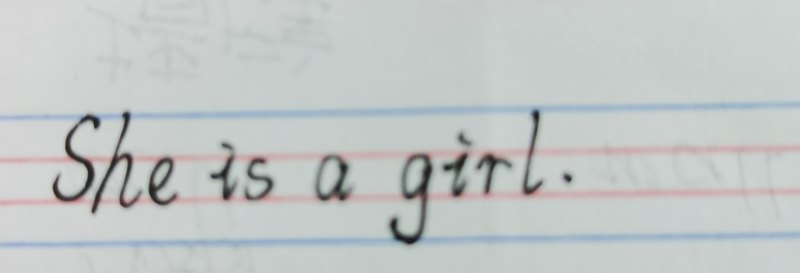 She is a girl.